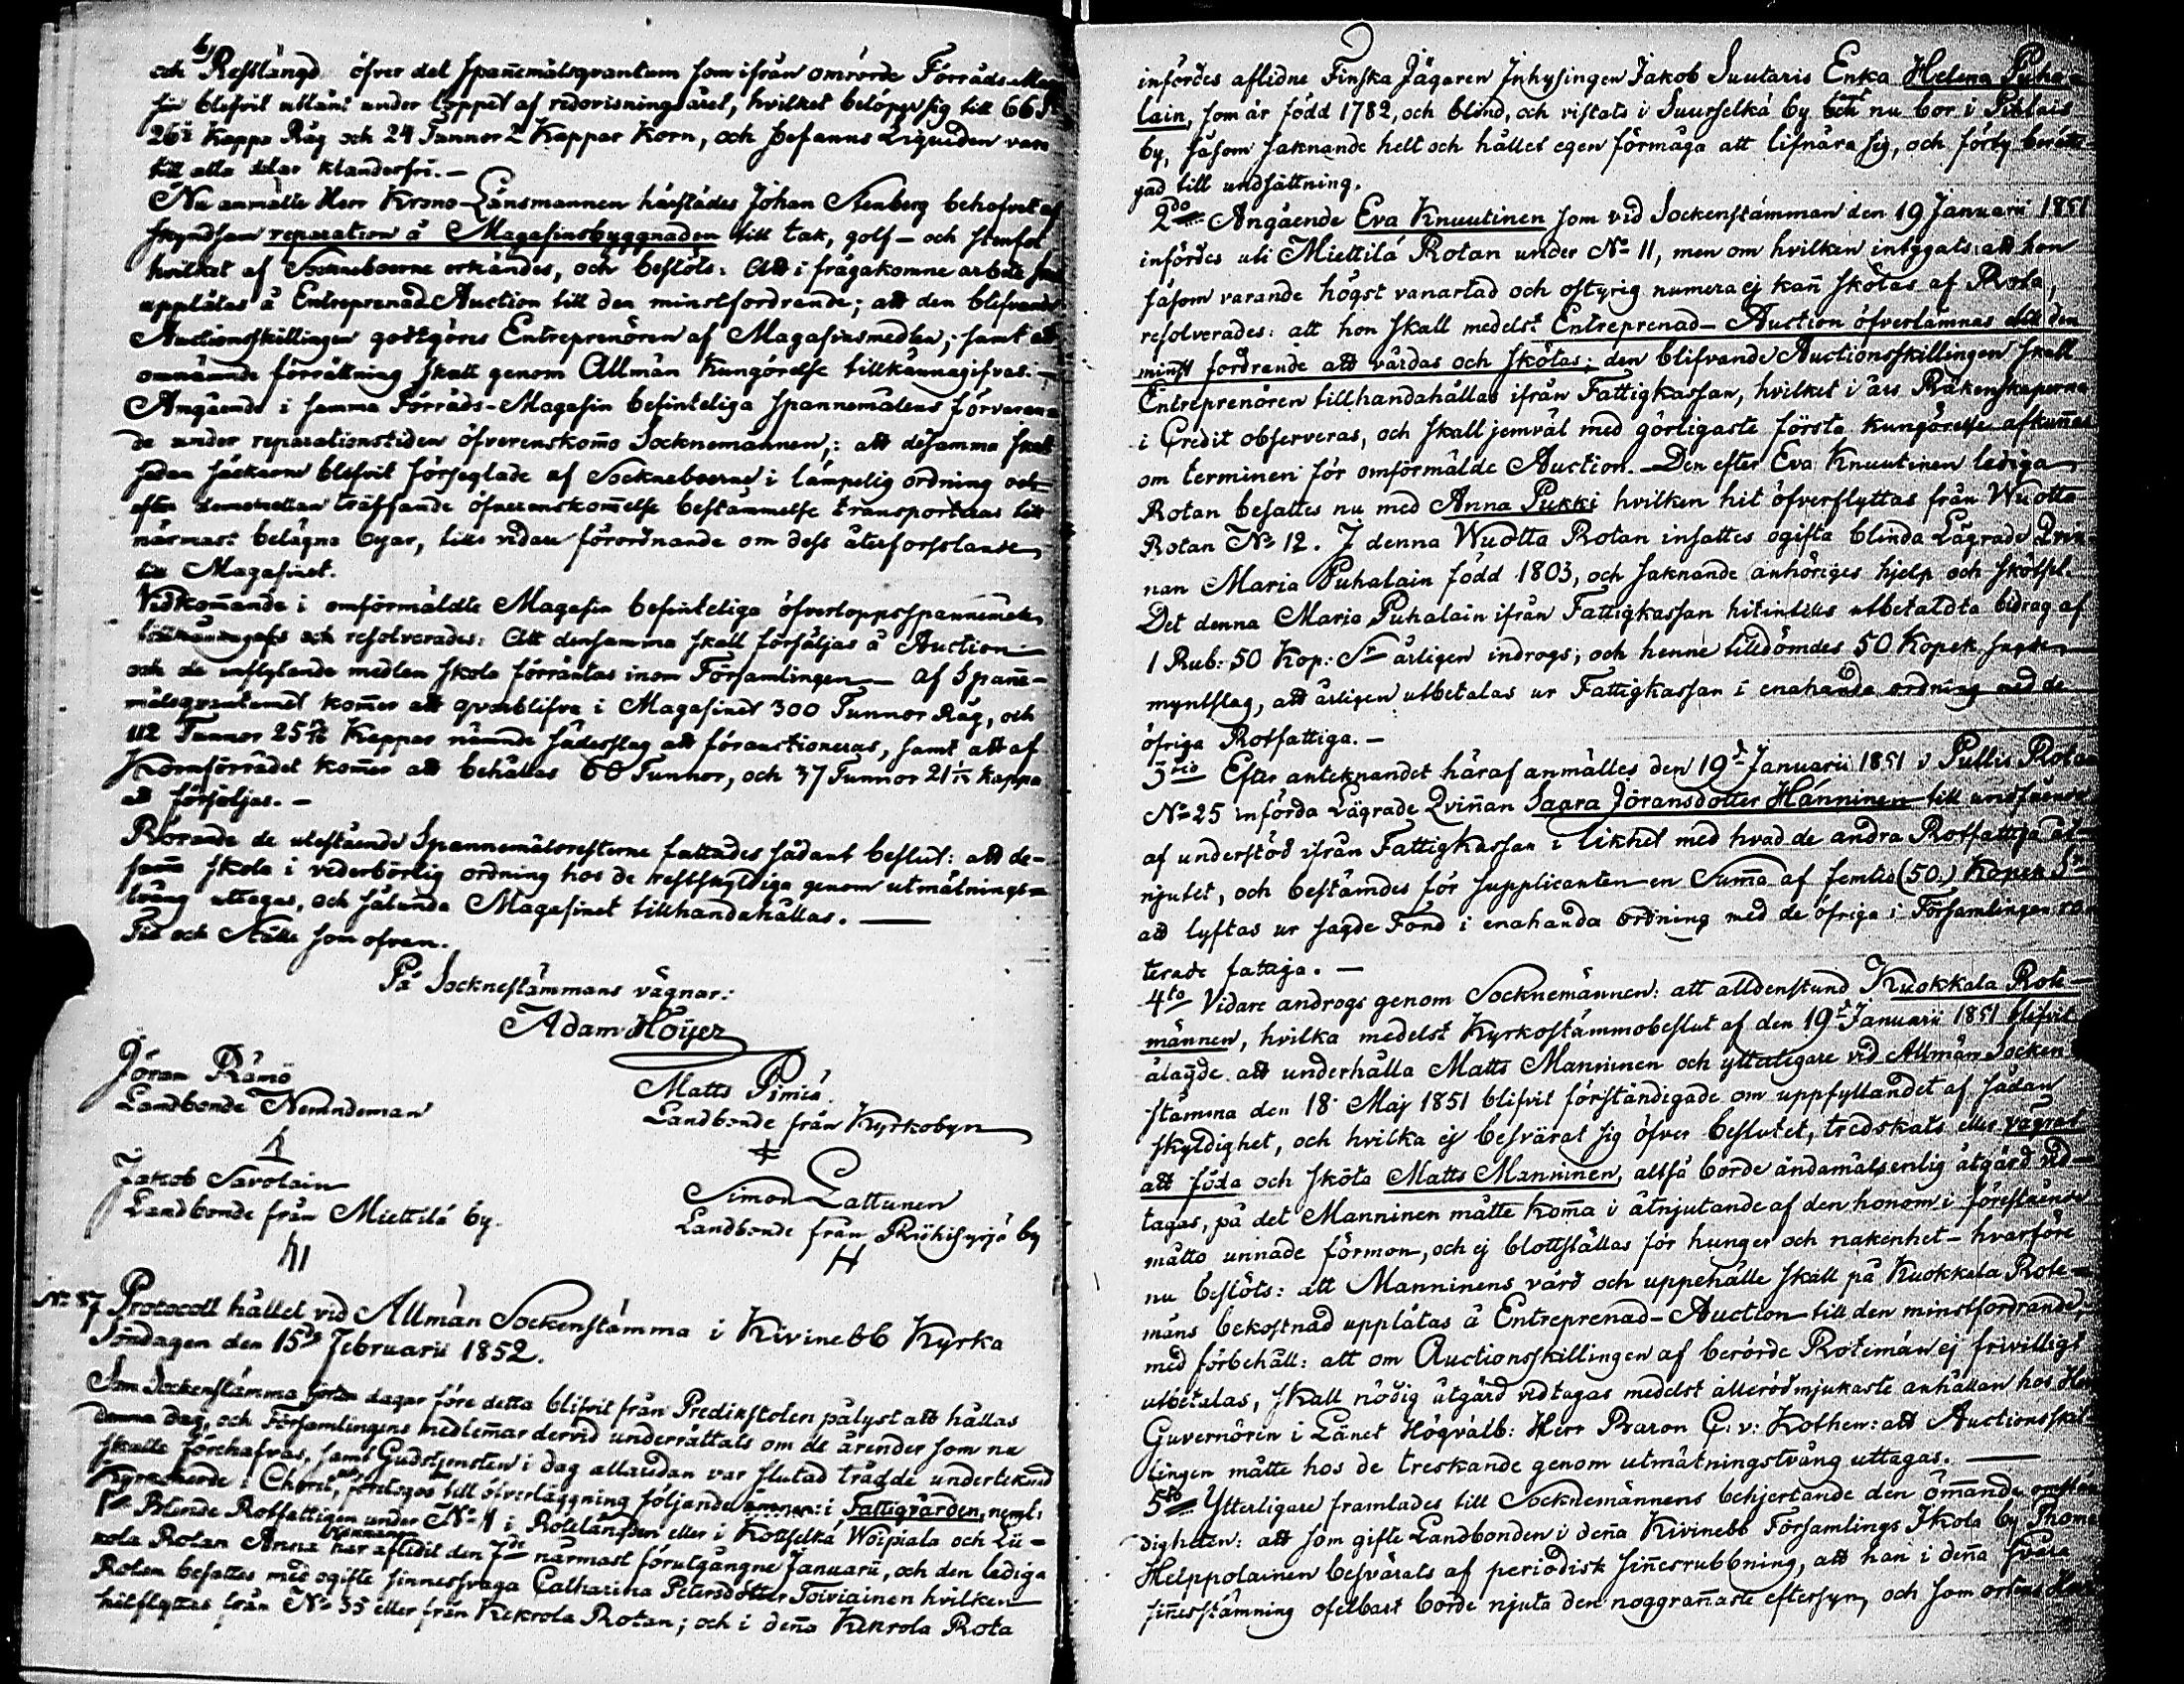 b/
och Restlängd öfver det spanemålsqvantum som ifrån omrörde Förråds-Maga
sin blifvit utlånt under loppet af redovisningsåret, hvilket belöper sig till 66
26½ Kappa Råg och 24 Tunnor 2 Kappar Korn, och befanns Liquiden vara
till alla delar klanderfri. —
Nu anmälte Herr Krono-Länsmannen härstädes Johan Stenberg behofvet af
skyndsam reparation å Magasinsbyggnaden till tak, golf- och stenfot
hvilket af Socknеboerne erkändes, och beslöts: Att i frågakomne arbete skall
upplåtas å Entreprenad Auction till den minstfordrande; att den blifvande
Auctionsskillingen godtgöres Entreprenören af Magasinsmedlen; samt att
omnämnde förrättning skall genom Allmän Kungörelse tillkännagifvas. —
Angående i samma Förråds-Magasin befinteliga spannemålens förvaran-
de under reparationstiden öfverenskomo Socknemännen,: att desamma skall
sedan säckarne blifvit förseglade af Sockneboerne i lämpelig ordning och
efter dememellan träffande öfverenskomelse bestämmelse transporteras till
närmast belägna byar, tills vidare förordnande om dess återforslande
till Magasinet.
Vidkomande i omförmäldte Magasin befinteliga öfverloppsspannemålen
tillkännagafs och resolverades: Att densamma skall försäljas å Auction
och de inflytande medlen skola förräntas inom Församlingen — af Spane-
målsqvantumet komer att qvarblifva i Magasinet 300 Tunnor Råg, och
112 Tunnor 25 Kappar nämnde sädesslag att förauctioneras, samt att af
Kornförrådet komer att behållas 60 Tunnor, och 37 Tunnor 21 Kappa
att försäljas. —
Rörande de utestående Spannemålsresterne fattades sådant beslut: att de-
sama skola i vederbörlig ordning hos de restskyldiga genom utmätnings-
tvång uttagas, och sålunda Magasinet tillhandahållas. —
Tid och Ställe som ofvan.
På Socknestämmans vägnar:
Adam Höijer
Jöran Rämö
Landbonde Nemndeman
Matts Pimiä
Landbonde från Kyrkobyn
Jakob Savolain
Landbonde från Miettilä by.
Simon Lattunen
Landbonde från Riikisyrjä by
No 87 Protocoll hållet vid Allmän Sockenstämma i Kivinebb Kyrka
Söndagen den 15de Februarii 1852.
Som Sockenstämma fjorton dagar före detta blifvit från Predikstolen pålyst att hållas
denna dag, och Församlingens medlemar dervid underrättats om de ärender som nu
skulle förehafvas, samt Gudstjensten i dag allaredan var slutad trädde undertecknad
Kyrkoherde i Choret, och företogos till öfverläggning följande ämnen: i Fattigvården, neml:
1mo Blinde Rotfattigen under No 11 i Rotelängden eller i Kottselkä Woipiala och Lii-
kola Rotan Anna har aflidit den 7de närmast förutgångne Januarii, och den lediga
Rotan besattes med ogifte sinnessvaga Catharina Petersdotter Toiviainen hvilken
hitflyttas från No 35 eller från Kekrola Rotan; och i dena Kekrola Rota
infördes aflidne Finska Jägaren Inhysingen Jakob Suutaris Enka Helena Puha-
lain, som är född 1782, och blind, och vistats i Suurselkä by samt nu bor i Pihlais
by, såsom saknande helt och hållet egen förmåga att lifnära sig, och förty berätti-
gad till undsättning.
2do Angående Eva Knuutinen som vid Sockenstämman den 19 Januarii 1851
infördes uti Miettilä Rotan under No 11, men om hvilken intygats: att hon
såsom varande högst vanartad och ostyrig numera ej kan skötas af Rota,
resolverades: att hon skall medelst Entreprenad-Auction öfverlämnas till den
minst fordrande att vårdas och skötas; den blifvande Auctionsskillingen skall
Entreprenören tillhandahållas ifrån Fattigkassan, hvilket i års Räkenskaperna
i Credit observeras, och skall jemväl med görligaste första kungörelse afkunas
om terminen för omförmälde Auction. — Den efter Eva Knuutinen lediga
Rotan besattes nu med Anna Pukki hvilken hit öfverflyttas från Wuotta
Rotan No 12. I denna Wuotta Rotan insattes ogifta blinda Lägrade Qvin-
nan Maria Puhalain född 1803, och saknande anhöriges hjelp och skötsel.
Det denna Maria Puhalain ifrån Fattigkassan hitintills utbetaldta bidrag af
1 Rub: 50 Kop: Sr årligen indrogs; och henne tilldömdes 50 Kopek sagde
myntslag, att årligen utbetalas ur Fattigkassan i enahanda ordning med de
öfriga Rotfattiga. —
3tio Efter anteknandet häraf anmältes den 19de Januarii 1851 i Pullis Rotan
No 25 införda Lägrade Qvinan Saara Jöransdotter Hänninen till undfående
af understöd ifrån Fattigkassan i likhet med hvad de andra Rotfattiga åt-
njutet, och bestämdes för supplicanten en Suma af femtio (50.) Kopek Sr
att lyftas ur sagde Fond i enahanda ordning med de öfriga i Församlingen ro-
terade fattiga. —
4to Vidare androgs genom Socknemännen: att alldenstund Kuokkala Rote-
männen, hvilka medelst Kyrkostämmobeslut af den 19de Januarii 1851 blifvit
ålagde att underhålla Matts Manninen och ytterligare vid Allmän Socken
stämma den 18 Maj 1851 blifvit förständigade om uppfyllandet af sådan
skyldighet, och hvilka ej besvärat sig öfver beslutet, tredskats eller vägrat
att föda och sköta Matts Manninen, altså borde ändamålsenlig åtgärd vid-
tagas, på det Manninen måtte koma i åtnjutande af den honom i förestående
måtto unnade förmon, och ej blottställas för hunger och nakenhet — hvarföre
nu beslöts: att Manninens vård och uppehälle skall på Kuokkala Rote-
mäns bekostnad upplåtas å Entreprenad-Auction till den minstfordrande,
med förbehåll: att om Auctionsskillingen af berörde Rotemän ej frivilligt
utbetalas, skall nödig åtgärd vidtagas medelst allerödmjukaste anhållan hos Herr
Guvernören i Länet Högvälb: Herr Baron C: v: Kothen: att Auctionsskil-
lingen måtte hos de treskande genom utmätningstvång uttagas. —
5to Ytterligare framlades till Socknemännens behjertande den ömande omstän
digheten: att som gifte Landbonden i dena Kivinebb Församlings Ikola by Thomas
Helppolainen besvärats af periodisk sinesrubbning, att han i dena svåra
sinesstämning ofelbart borde njuta den noggranaste eftersyn, och som ortens